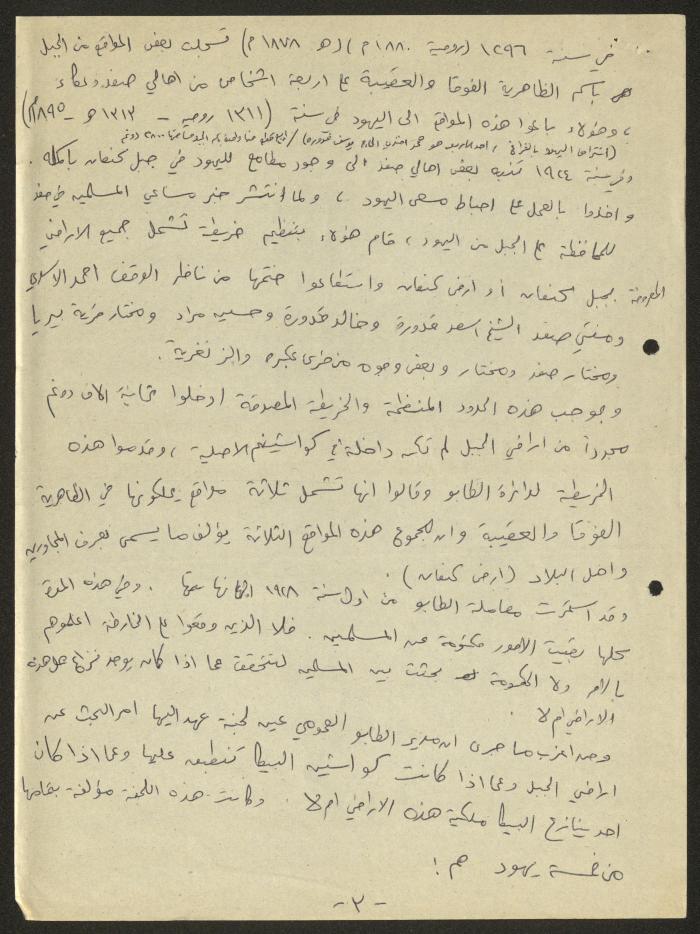 في سنة ١٢٩٦ (رومية ١٨٨٠ م) (هـ ١٨٧٨ م) تسجلت بعض المواقع من الجبل
باسم الظاهرية الفوقا والعقيبة على اربعة اشخاص من اهالي صفد وعكا
، وهؤلاء باعوا هذه المواقع الى اليهود في سنة (١٣١١ رومية - ١٣١٣ هـ - ١٨٩٥ م)
وفي سنة ١٩٢٤ تنبه بعض اهالي صفد الى وجود مطامع لليهود في جبل كنعان بأكمله .
واخذوا بالعمل على احباط مسعى اليهود ، ولما انتشر خبر مساعي المسلمين في صفد
للمحافظة على الجبل من اليهود ، قام هؤلاء بتنظيم خريطة تشمل جميع الاراضي
المعروفة بجبل كنعان او ارض كنعان واستطاعوا ختمها من ناظر الوقف احمد
ومفتي صفد الشيخ اسعد قدورة وخالد قدورة وحسين مراد ومختار قرية بيريا
ومختار صفد ومختار وبعض وجوه من قرى عكبره والزنغرية .
وبموجب هذه الحدود المنظمة والخريطة المصدقة ادخلوا ثمانية الاف دونم
مجدداً من اراضي الجبل لم تكن داخلة في كواشينهم الاصلية ، وقدموا هذه
الخريطة لدائرة الطابو وقالوا انها تشمل ثلاثة مواقع يملكونها في الظاهرية
الفوقا والعقيبة وان مجموع هذه المواقع الثلاثة يؤلف ما يسمى بعرف المجاورين
واهل البلاد (ارض كنعان) .
وقد استمرت معاملة الطابو من اول سنة ١٩٢٨ الى نهايتها . وفي هذه المدة
كلها بقيت الامور مكتومة عن المسلمين . فلا الذين وقعوا على الخارطة اعلموهم
بالامر ولا الحكومة بحثت بين المسلمين لتتحقق عما اذا كان يوجد نزاع على هذه
الاراضي ام لا .
ومن اغرب ما جرى ان مدير الطابو العمومي عين لجنة عهد اليها امر البحث عن
اراضي الجبل وعما اذا كانت كواشين البيكا تنطبق عليها وعما اذا كان
احد ينازع البيكا ملكية هذه الاراضي ام لا . وكانت هذه اللجنة مؤلفة بتمامها
من خمسة يهود هم :
- ٣ -